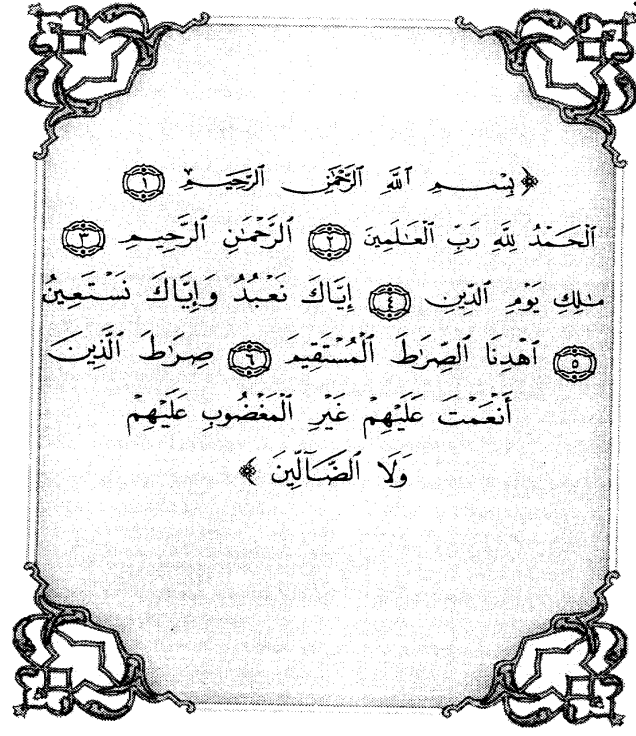 ﴿ بِسْمِ ٱللَّهِ ٱلرَّحْمَٰنِ ٱلرَّحِيمِ ١
ٱلْحَمْدُ لِلَّهِ رَبِّ ٱلْعَٰلَمِينَ ٢ ٱلرَّحْمَٰنِ ٱلرَّحِيمِ ٣
مَٰلِكِ يَوْمِ ٱلدِّينِ ٤ إِيَّاكَ نَعْبُدُ وَإِيَّاكَ نَسْتَعِينُ
٥ ٱهْدِنَا ٱلصِّرَٰطَ ٱلْمُسْتَقِيمَ ٦ صِرَٰطَ ٱلَّذِينَ
أَنْعَمْتَ عَلَيْهِمْ غَيْرِ ٱلْمَغْضُوبِ عَلَيْهِمْ
وَلَا ٱلضَّآلِّينَ ﴾